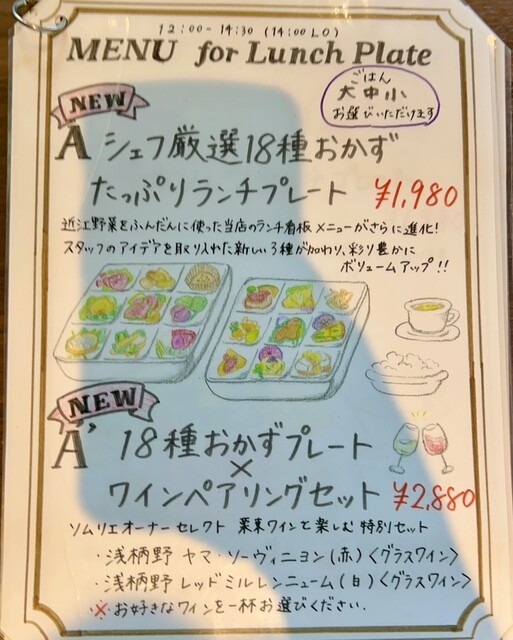 12:00-14:30 (14:00 LO)
MENU for Lunch Plate
ごはん
大中小
お選びいただけます
NEW
A シェフ厳選18種おかず
たっぷりランチプレート ¥1,980
近江野菜をふんだんに使った当店のランチ看板メニューがさらに進化!
スタッフのアイデアを取り入れた新しい3種が加わり、彩り豊かに
ボリュームアップ!!
NEW
A' 18種おかずプレート
×
ワインペアリングセット ¥2,880
ソムリエオーナーセレクト 栗東ワインと楽しむ特別セット
・浅柄野 ヤマ・ソーヴィニヨン(赤)〈グラスワイン〉
・浅柄野 レッドミルレンニューム(白)〈グラスワイン〉
※お好きなワインを一杯お選びください.